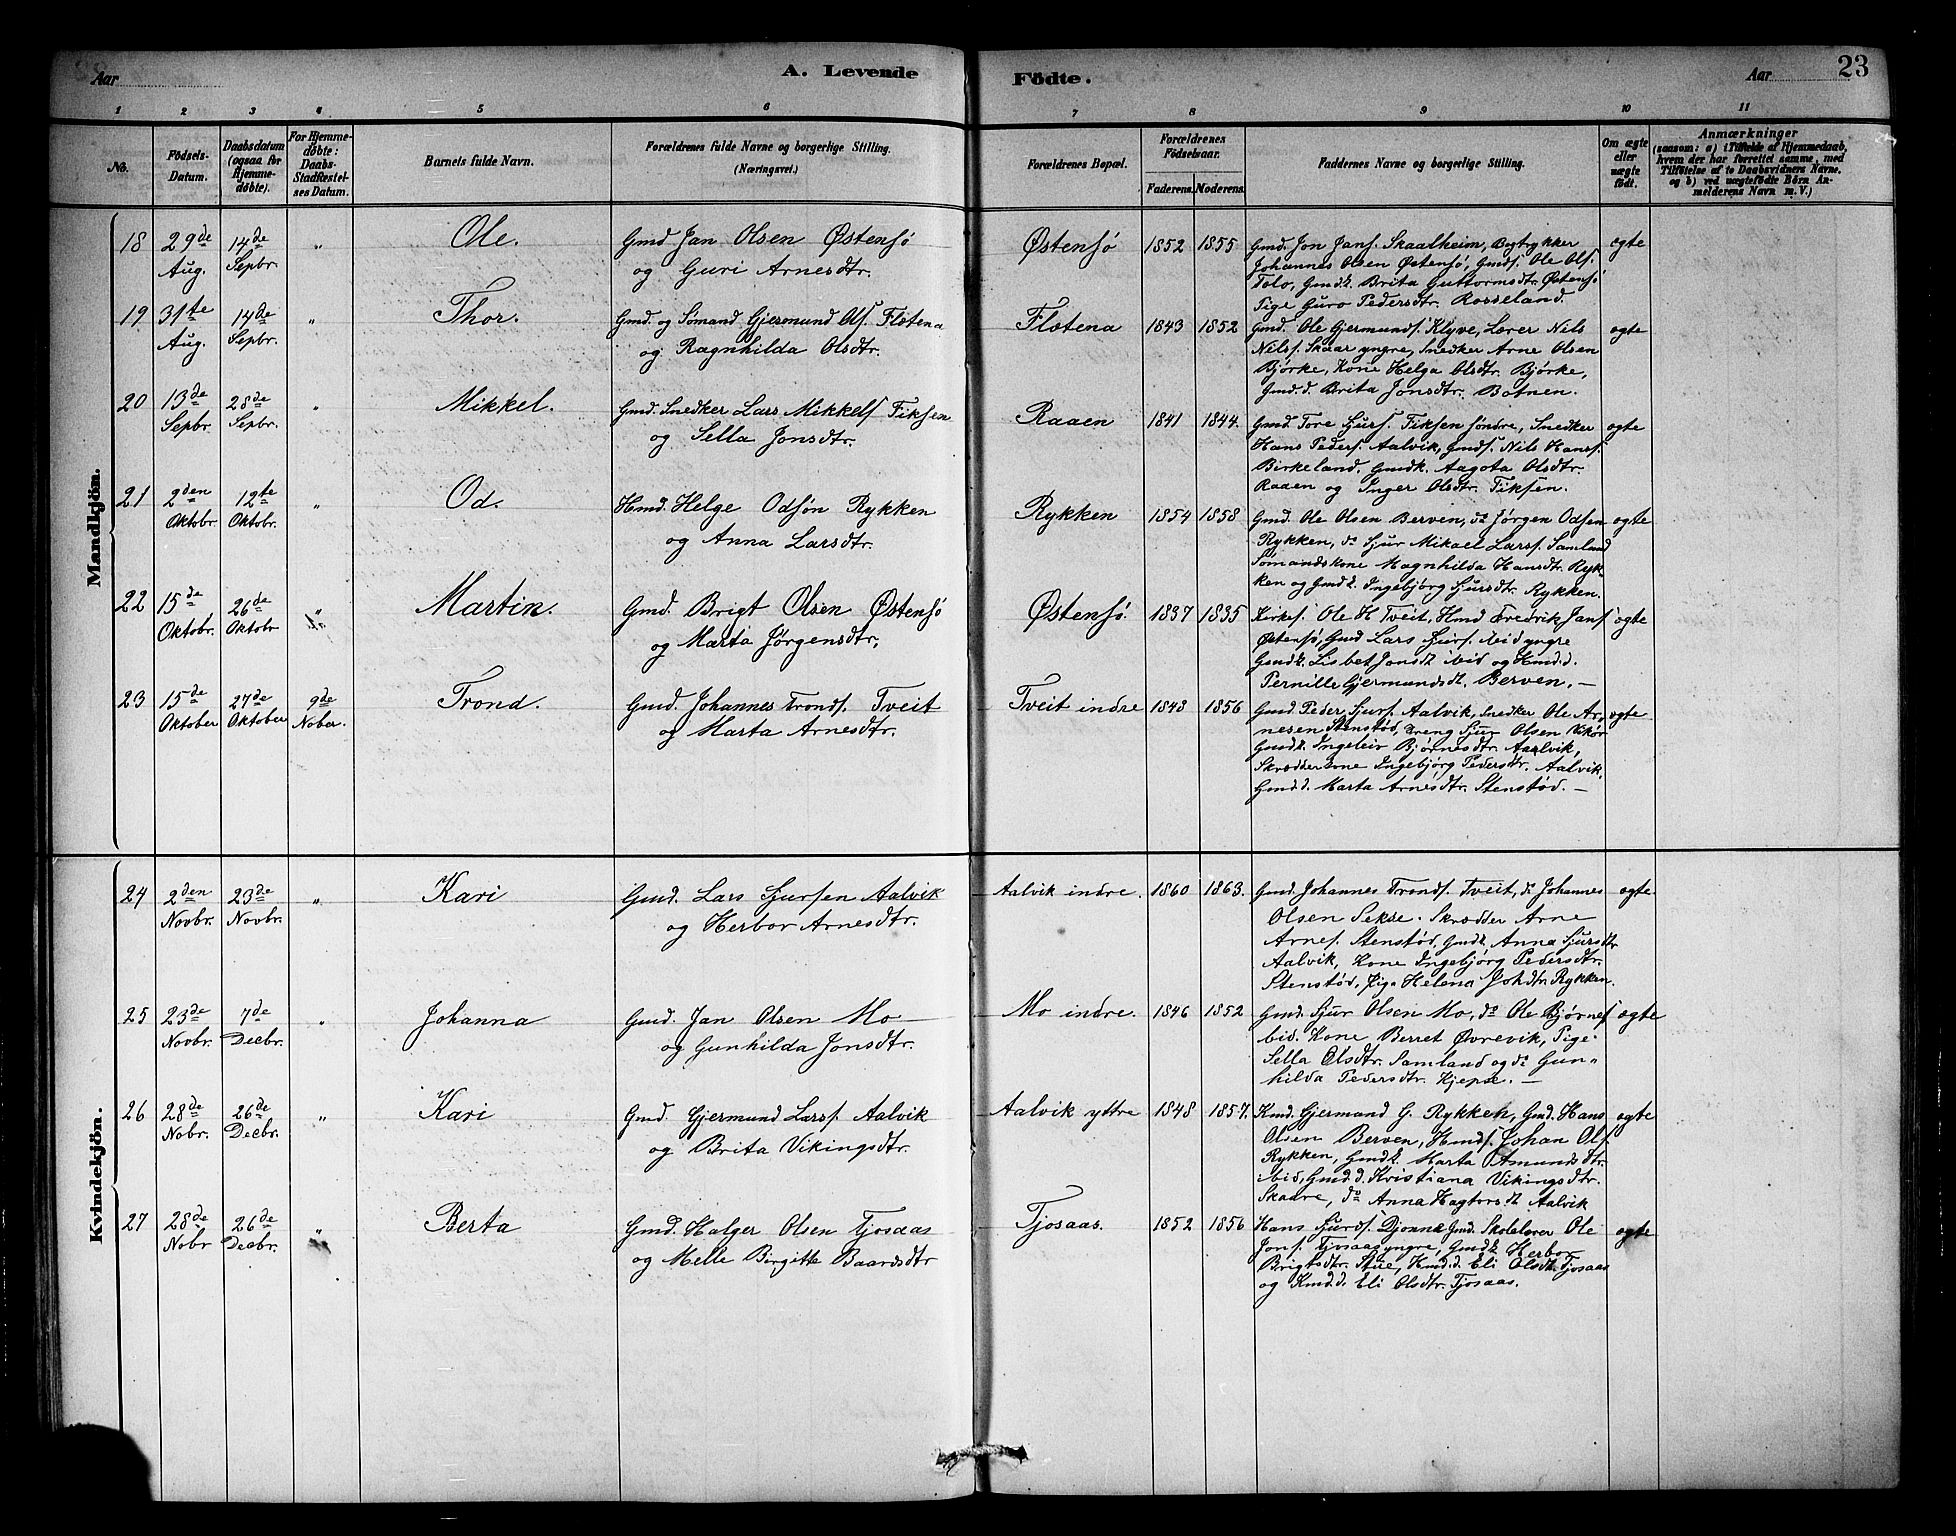 Aar
A. Levende
Födte.
Aar
23
1 2 3 4 5 6 7 8 9 10 11
No.
Födsels-Datum.
Daabsdatum (ogsaa for Hjemmedöbte).
For Hjemmedöbte: Daabs-Stadfæstelses Datum.
Barnets fulde Navn.
Forældrenes fulde Navne og borgerlige Stilling.
(Næringsvei.)
Forældrenes Bopæl.
Forældrenes Födselsaar.
Faderens. Moderens.
Faddernes Navne og borgerlige Stilling.
Om ægte eller uægte födt.
Anmærkninger
(saasom: a) i Tilfælde af Hjemmedaab,
hvem der har forrettet samme, med
Tilföielse af to Daabsvidners Navne.
og b) ved uægtefödte Börn An-
melderens Navn m. V.)
Mandkjön.
18 29de Aug. 14de Sepbr. " Ole. Gmd Jan Olsen Østensø
og Guri Arnesdtr.
Østensø 1852 1855 Gmd. Jon Jans. Skaalheim, Bogtrykker
Johannes Olsen Østensø, Gmds. Ole Ols.
Tolo, Gmdk. Brita Guttormsdtr. Østensø
Pige Guro Pedersdtr. Rosseland.
ægte
19 31te Aug. 14de Sepbr. " Thor. Gmd. og Sømand Gjermund Ols. Flotena
og Ragnhilda Olsdtr.
Flotena 1843 1852 Gmd. Ole Gjermunds. Klyve, Lærer Nils
Nils. Skaar yngre, Snedker Arne Olsen
Bjørke, Kone Helga Olsdtr. Bjørke,
Gmd.d. Brita Jonsdtr. Botnen.
ægte
20 13de Sepbr. 28de Sepbr. " Mikkel. Gmd. Snedker Lars Mikkels. Fiksen
og Sella Jonsdtr.
Raaen 1841 1844. Gmd. Tore Sjurs. Fiksen søndre, Snedker
Hans Peders. Aalvik, Gmds. Nils Hans.
Birkeland. Gmdk. Aagota Olsdtr.
Raaen og Inger Olsdtr. Fiksen.
ægte
21 2den Oktobr. 12te Oktobr. " Od. Hmd. Helge Odsøn Rykken
og Anna Larsdtr.
Rykken 1854 1858 Gmd. Ole Olsen Berven, do Jørgen Odsen
Rykken, do Sjur Mikael Lars. Samland
Sømandskone Magnhilda Hansdtr. Ryk-
ken og Gmdk. Ingebjørg Sjursdtr. Rykken.
ægte
22 15de Oktobr. 26de Oktobr " Martin. Gmd. Brigt Olsen Østensø
og Marta Jørgensdtr.
Østensø. 1837 1835 Kirkes. Ole H Tveit, Hmd Fredrik Jans.
Østensø, Gmd Lars Sjurs. ibid yngre
Gmdk. Lisbet Jonsdt. ibid og Hmd.d.
Pernille Gjermundsdt. Berven. —
ægte
23 15de Oktober 27de Oktober 9de Nober. Trond. Gmd. Johannes Tronds. Tveit
og Marta Arnesdtr.
Tveit indre 1843 1856 Gmd. Peder Sjurs. Aalvik, Snedker Ole Ar-
nesen Stenstød, Dreng Sjur Olsen Vikør
Gmdk. Ingeleiv Bjørnesdtr. Aalvik,
Skrædderkone Ingebjørg Pedersdtr. Aalvik,
Gmd.d. Marta Arnesdtr. Stenstød. —
ægte
Kvindekjön.
24 2den Novbr. 23de Novbr. " Kari Gmd. Lars Sjursen Aalvik
og Herbor Arnesdtr.
Aalvik indre. 1860 1863. Gmd. Johannes Tronds. Tveit, do Johannes
Olsen Sekse. Skrædder Arne
Arnes. Stenstød, Gmdk. Anna Sjursdtr
Aalvik, Kone Ingebjørg Pedersdtr.
Stenstød, Pige Helena Johdtr. Rykken.
ægte
25 23de Novbr. 7de Decbr. " Johanna Gmd. Jan Olsen Mo —
og Gunhilda Jonsdtr.
Mo indre. 1846 1852 Gmd. Sjur Olsen Mo, do Ole Bjørnes.
ibid. Kone Berret Øvrevik, Pige
Sella Olsdtr. Samland og do Gun-
hilda Pedersdtr. Kjepse. —
ægte
26 28de Nobr. 26de Decbr. " Kari Gmd. Gjermund Lars. Aalvik
og Brita Vikingsdtr.
Aalvik yttre 1848 1857. Kmd. Gjermand G. Rykken, Gmd. Hans
Olsen Berven, Hmds. Johan Ols.
Rykken, Gmdk. Marta Amundsdtr.
ibid, Gmd.d. Kristiana Vikingsdtr.
Skaare, do Anna Hagtorsdt Aalvik
ægte
27 28de Nobr 26de Decbr. " Berta Gmd. Halger Olsen Tjosaas
og Melle Birgitte Baardsdtr
Tjosaas. 1852 1856 Hans Sjurds. Djonne Gmd. Skolelærer Ole
Jons. Tjosaas yngre, Gmdk. Herbor
Brigtsdtr. Stue, Hmd.d. Eli Olsdt. Tjosaas
og Kmd.d. Eli Olsdtr. Tjosaas.
ægte